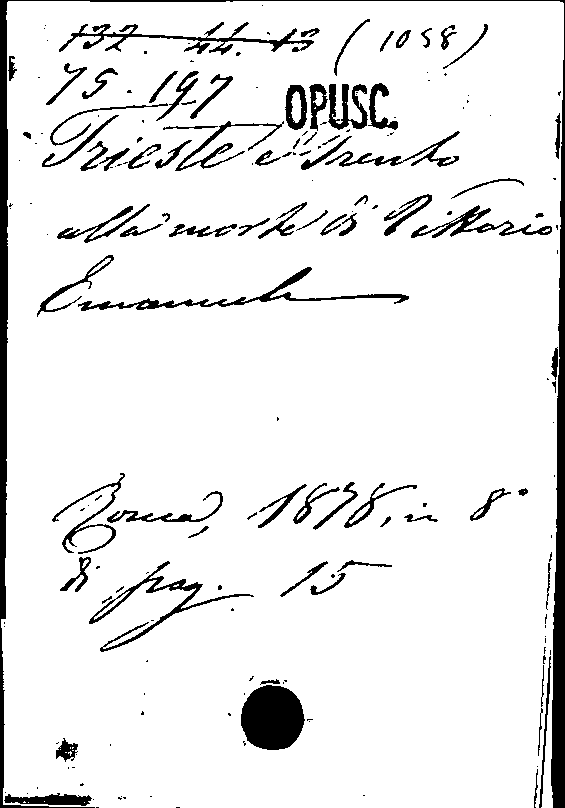 132. 44. 13 (1058)
75.197
OPUSC.
Trieste e Trento
alla morte di Vittorio
Emanuele
Roma, 1878, in 8°
di pag. 15